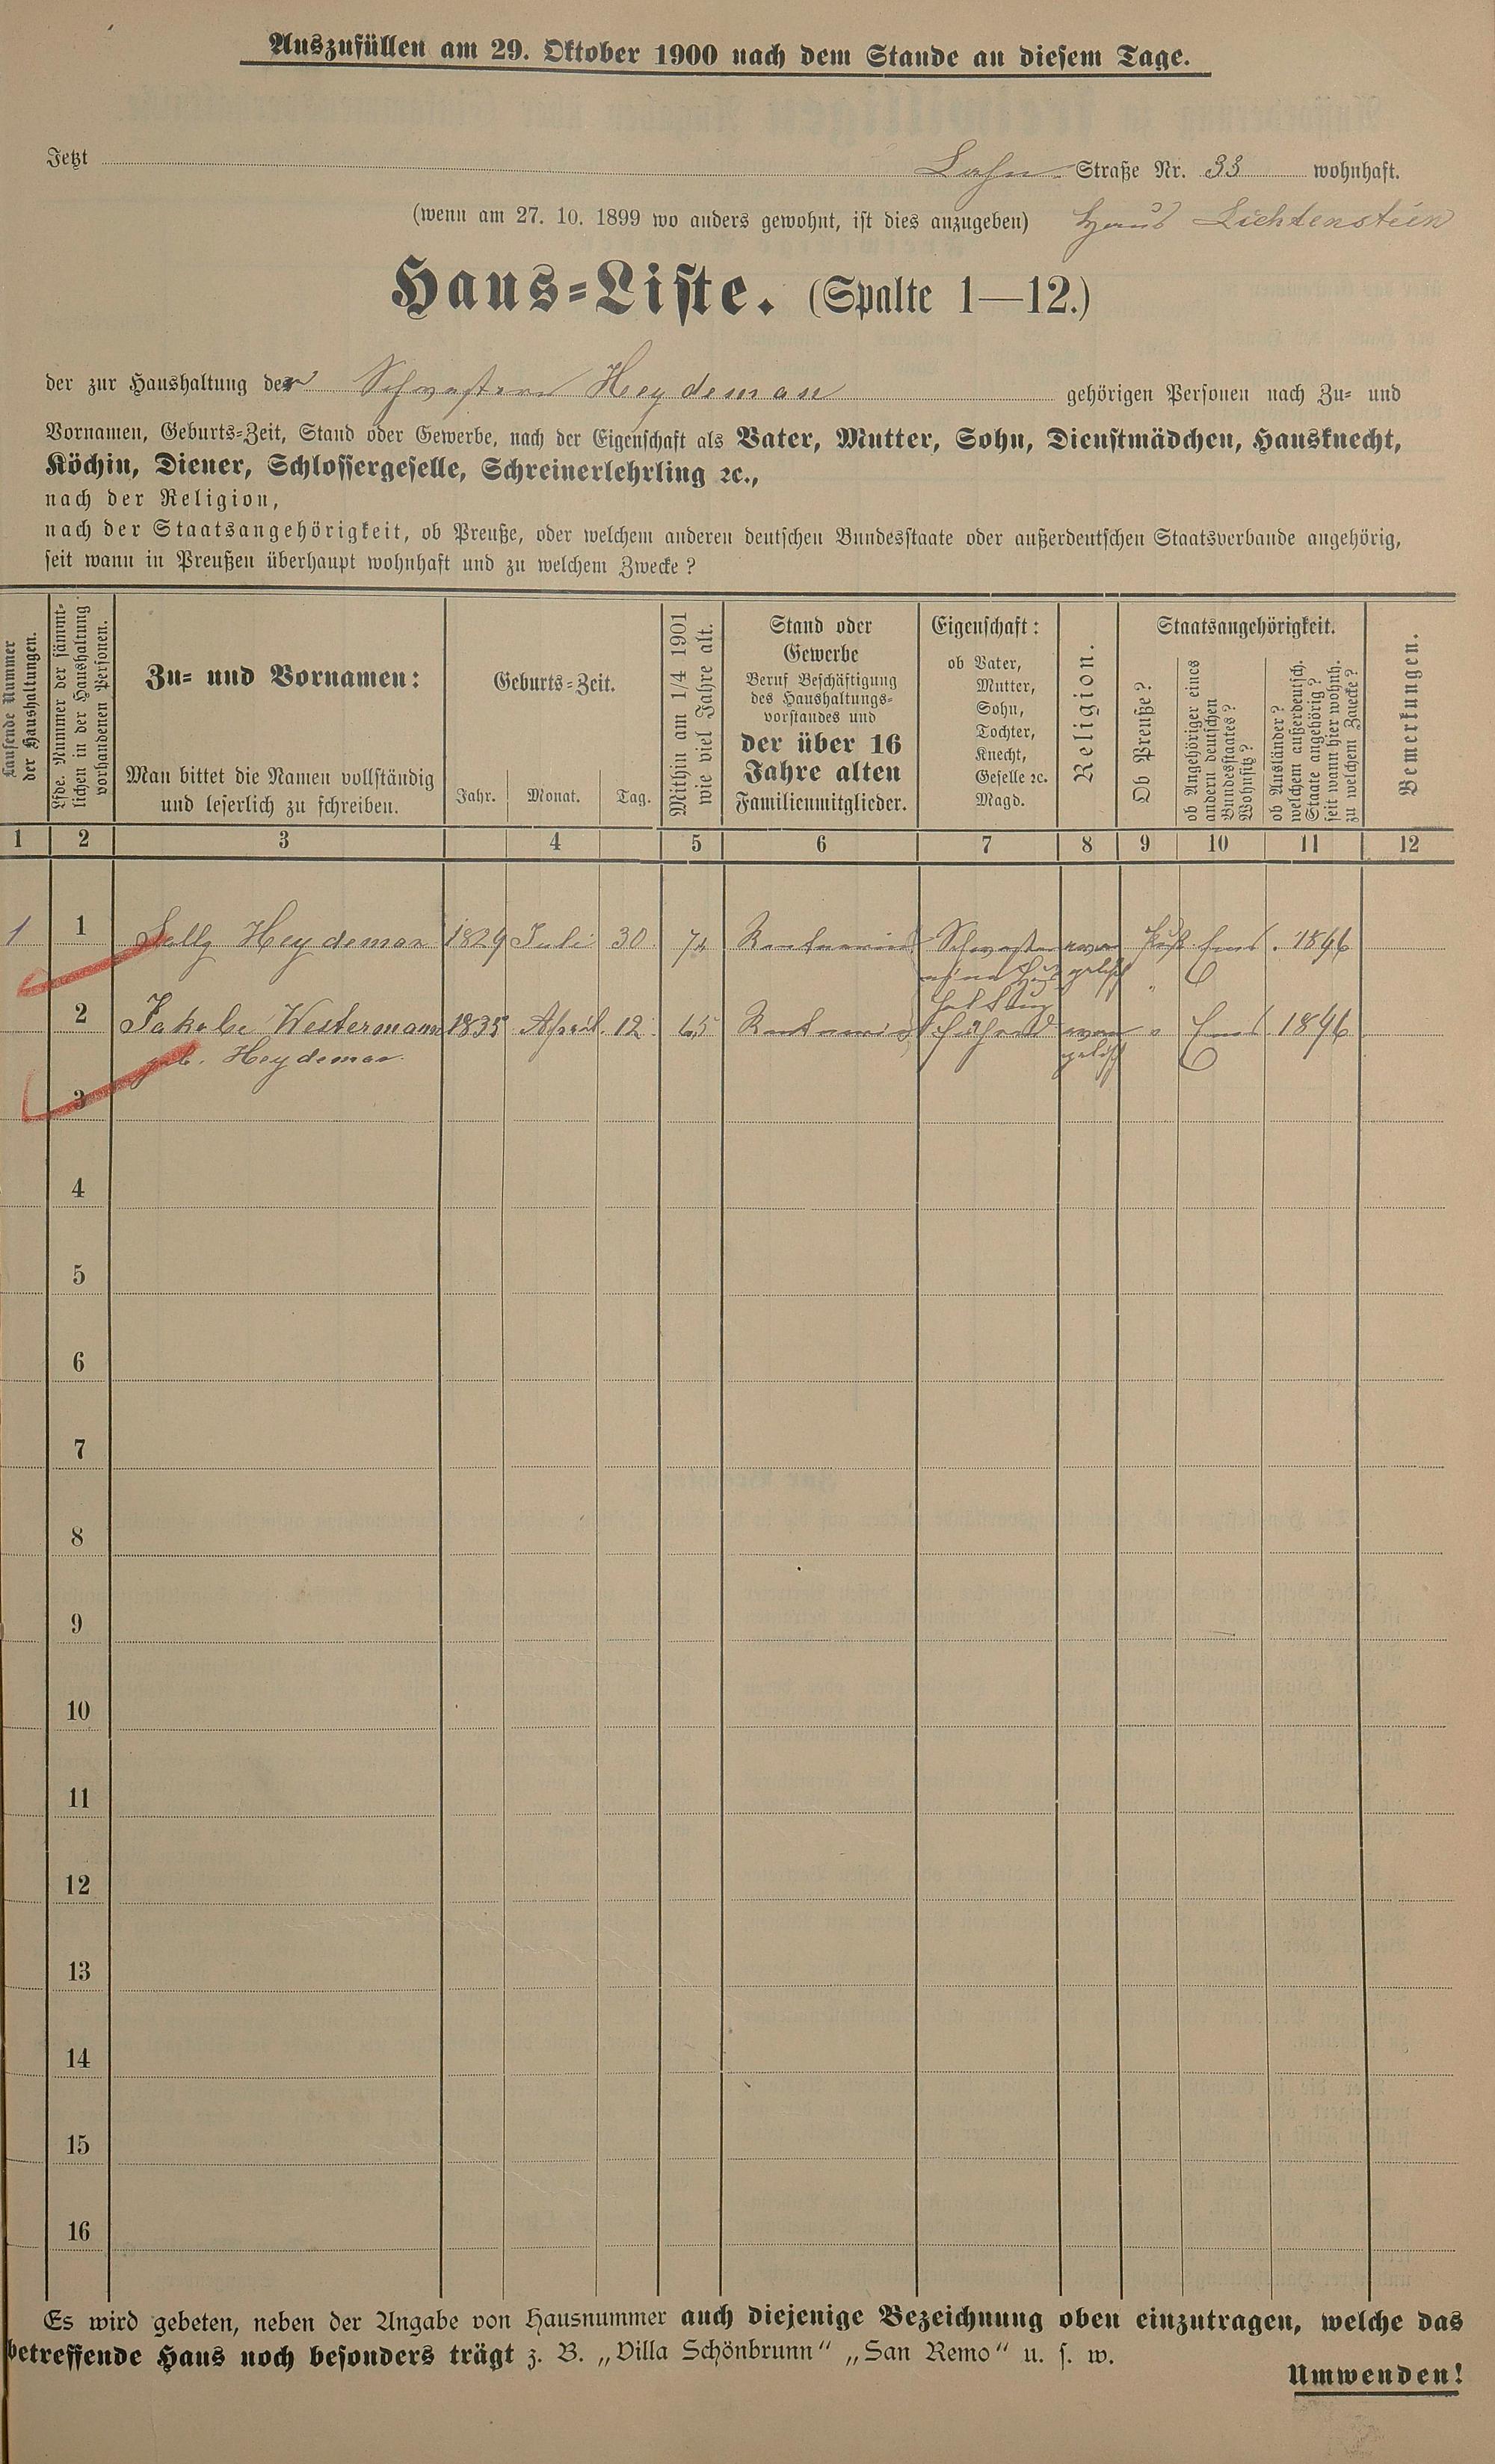 Auszufüllen am 29. Oktober 1900 nach dem Stande an diesem Tage.
Jetzt Lahn Straße Nr. 33 wohnhaft.
(wenn am 27. 10. 1899 wo anders gewohnt, ist dies anzugeben) Haus Lichtenstein
Haus=Liste. (Spalte 1—12.)
der zur Haushaltung der Schwestern Heydeman gehörigen Personen nach Zu= und
Vornamen, Geburts=Zeit, Stand oder Gewerbe, nach der Eigenschaft als Vater, Mutter, Sohn, Dienstmädchen, Hausknecht,
Köchin, Diener, Schlossergeselle, Schreinerlehrling ꝛc.,
nach der Religion,
nach der Staatsangehörigkeit, ob Preuße, oder welchem anderen deutschen Bundesstaate oder außerdeutschen Staatsverbande angehörig,
seit wann in Preußen überhaupt wohnhaft und zu welchem Zwecke?
Laufende Nummer
der Haushaltungen.
Lfde. Nummer der sämmt=
lichen in der Haushaltung
vorhandenen Personen.
Zu= und Vornamen:
Man bittet die Namen vollständig
und leserlich zu schreiben.
Geburts=Zeit.
Jahr. Monat. Tag.
Mithin am 1/4 1901
wie viel Jahre alt.
Stand oder
Gewerbe
Beruf Beschäftigung
des Haushaltungs=
vorstandes und
der über 16
Jahre alten
Familienmitglieder.
Eigenschaft:
ob Vater,
Mutter,
Sohn,
Tochter,
Knecht,
Geselle ꝛc.
Magd.
Religion.
Staatsangehörigkeit.
Ob Preuße?
ob Angehöriger eines
andern deutschen
Bundesstaates?
Wohnsitz?
ob Ausländer?
welchem außerdeutsch.
Staate angehörig?
seit wann hier wohnh.
zu welchem Zwecke?
Bemerkungen.
1 2 3 4 5 6 7 8 9 10 11 12
1 1 Heydeman 1829 Juli 30 Rentnerin Schwestern evan Ems. 1896
gelisch
2 Jakobe Westermann 1835 April. 12 65 Rentnerin führend evan " Ems 1896
geb. Heydeman. gelisch
3
4
5
6
7
8
9
10
11
12
13
14
15
16
Es wird gebeten, neben der Angabe von Hausnummer auch diejenige Bezeichnung oben einzutragen, welche das
betreffende Haus noch besonders trägt z. B. „Villa Schönbrunn“ „San Remo“ u. s. w.
Umwenden!